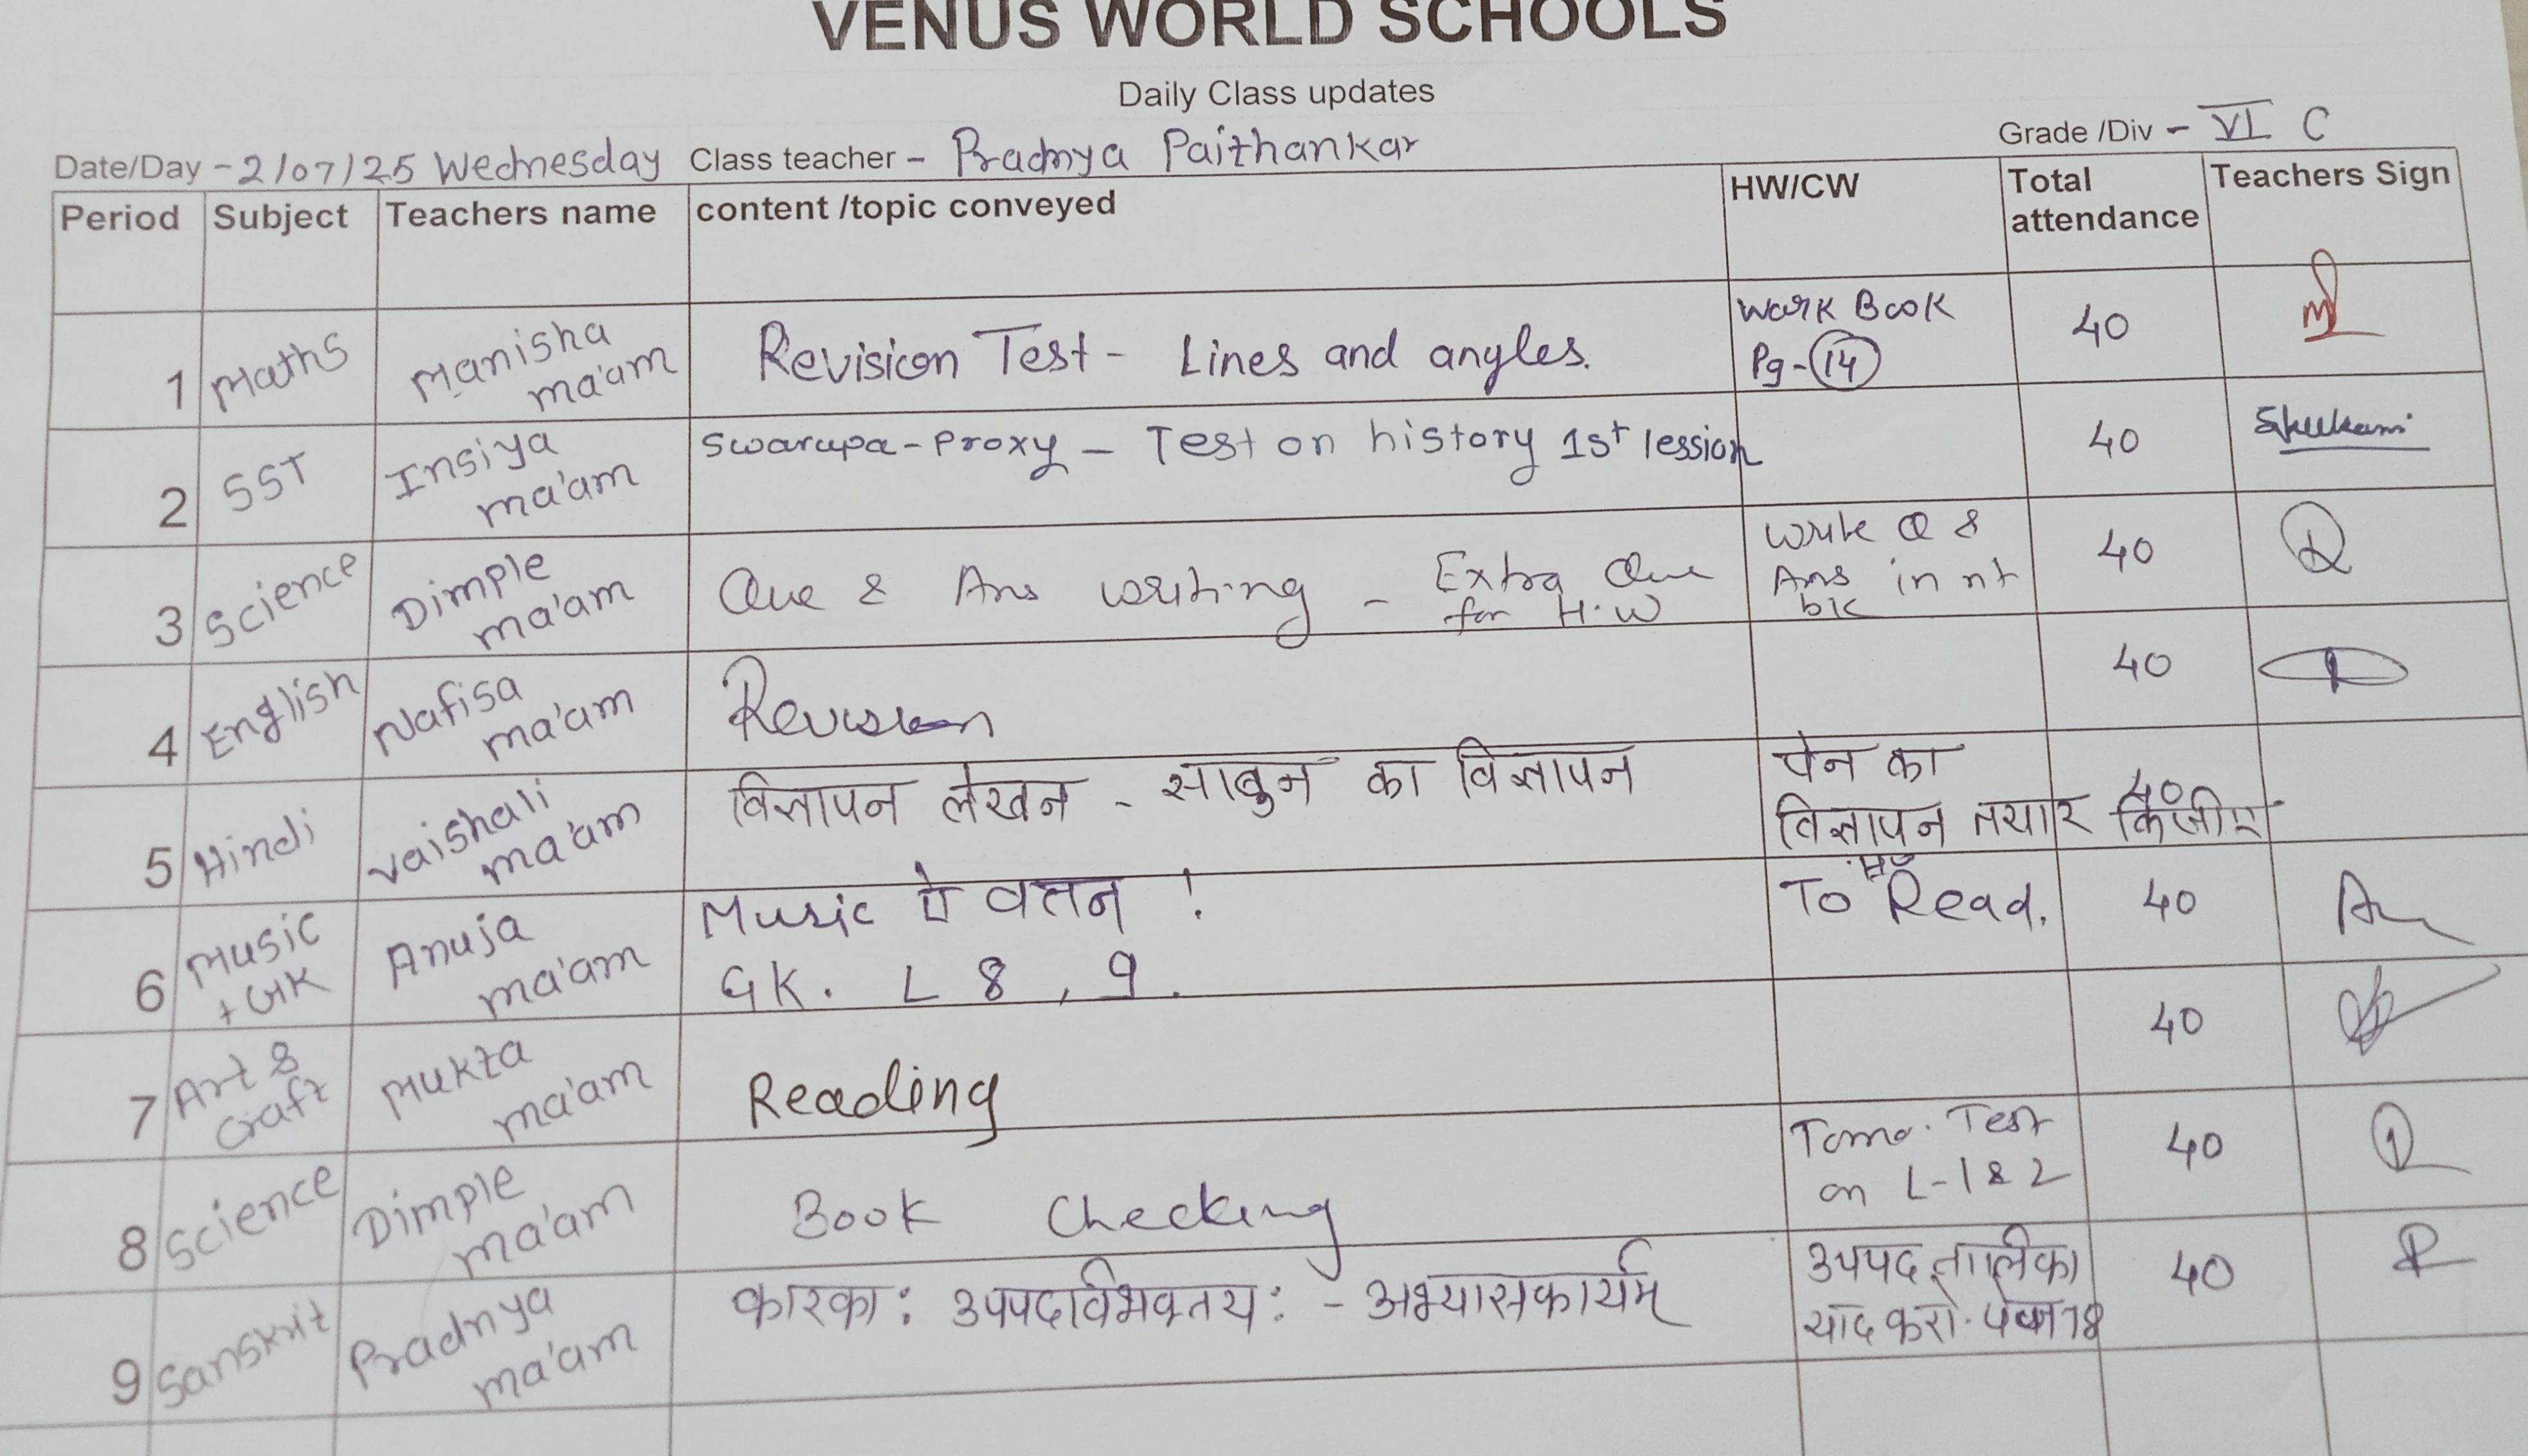 VENUS WORLD SCHOOLS
Daily Class updates
Date/Day - 2/07/25 Wednesday Class teacher - Pradnya Paithankar Grade /Div - VI C
Period Subject Teachers name content /topic conveyed HW/CW Total attendance Teachers Sign
1 Maths Manisha ma'am Revision Test - Lines and angles. Work Book Pg-14 40
2 SST Insiya ma'am Swarupa-Proxy - Test on history 1st lession 40
3 Science Dimple ma'am Que & Ans writing - Extra Que for H.W Write Q & Ans in nt bk 40
4 English Nafisa ma'am Revision 40
5 Hindi Vaishali ma'am विज्ञापन लेखन - साबुन का विज्ञापन पेन का विज्ञापन तयार किजीए 40
6 Music + GK Anuja ma'am Music ऐ वतन ! To Read. 40
GK. L 8, 9.
7 Art & Craft Mukta ma'am Reading 40
8 Science Dimple ma'am Book Checking Tomo. Test on L-1 & 2 40
9 Sanskrit Pradnya ma'am कारका: उपपदविभक्तय: - अभ्यासकार्यम् उपपद तालिका याद करो. पेज 78 40